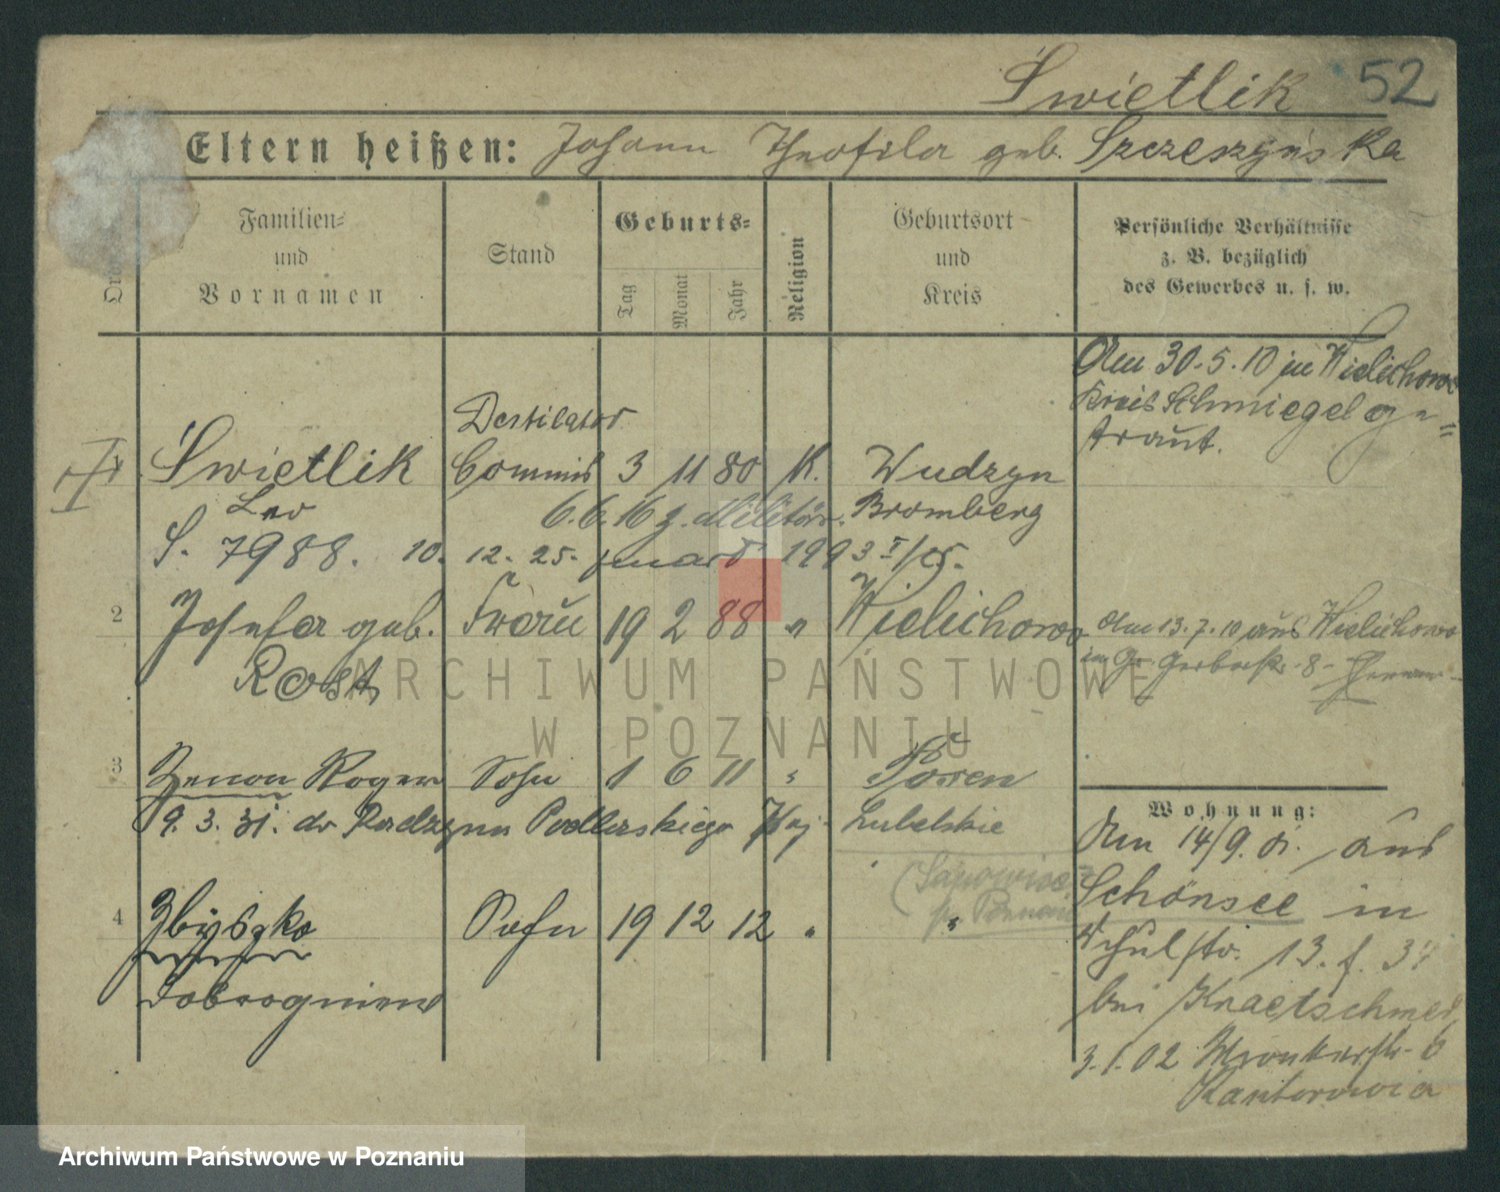 Świetlik 52
Eltern heißen: Johann Theofila geb. Szczeszyńska
Familien=
und
Vornamen
Stand
Geburts=
Tag
Monat
Jahr
Religion
Geburtsort
und
Kreis
Persönliche Verhältnisse
z. B. bezüglich
des Gewerbes u. s. w.
Am 30.5.10 in Wielichowo
Kreis Schmiegel ge=
traut.
Destilator
Świetlik Commis 3 11 80 K. Wudzyn
Leo 6.6.16 z. Militär. Bromberg
S. 7988. 10. 12. 25. 1993
2 Josefa geb. Frau 19 2 88 " Wielichowo
Rost
Am 13.7.10 aus Wielichowo
in Gr. Gerberstr. 8
3 Zenon Roger Sohn 1 6 11 " Posen
9. 3. 31. do Radzynn Podlaskiego Woj. Lubelskie
(Sapowice
p. Poznań
4 Zbyszko Sohn 19 12 12 " "
Dobrogniew
Wohnung:
Am 14/9. 01. aus
Schönsee in
Schulstr. 13. f. 3
bei Kraetschmer
3.1.02 Wronkerstr. 6
Kantorowicz
ARCHIWUM PAŃSTWOWE
W POZNANIU
Archiwum Państwowe w Poznaniu